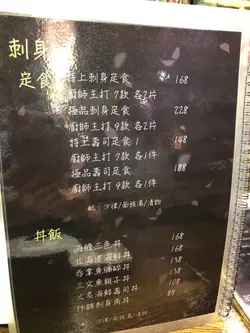 刺身
定食
特上刺身定食 168
廚師主打 7款 各2片
極品刺身定食 228
廚師主打 9款 各2片
特上壽司定食 1 148
廚師主打 7款 各1件
極品壽司定食 188
廚師主打 9款 各1件
配:沙律/面豉湯/漬物
丼飯
海膽三色丼 168
北海道海鮮丼 168
吞拿魚腩碎丼 138
三文魚親子丼 138
火炙海鮮壽司丼 108
什錦刺身魚丼 88
沙律/面豉湯/漬物